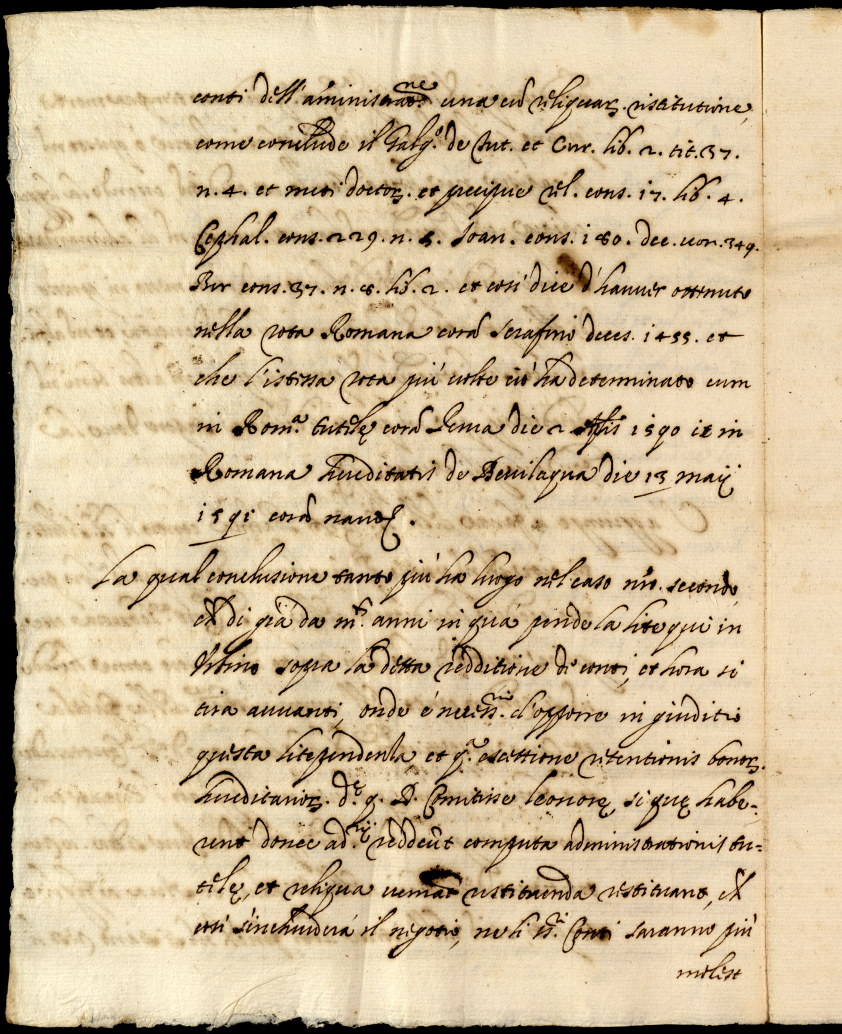 conti dell'aministrat.ne una cũ reliquar. ristitutione,
come conclude il Galg.o de Tut. et Cur. lib. 2. tit. 37.
n. 4. et molti doctor. et precipue cons. 17. lib. 4.
Cephal. cons. 229. n. 5. Joan. cons. 180. dec. 349.
cons. 37. n. 8. lib. 2. et così dice d'hauuer ottenuto
nella rota Romana corã Serafino deces. 1455. et
che l'istessa rota più uolte ciò ha determinato cum
in Rom.a tutelę corã die 2 1590 it in
Romana hereditatis de Beuilaqua die 13 maij
1591 corã
La qual conclusione tanto più ha luogo nel caso nro. secondo
di già da m.ti anni in quà pende la lite qui in
Vrbino sopra la detta redditione di conti, et hora si
tira auuanti, onde è necess.rio d'opporre in giuditio
questa litependenza, et q.a escettione retentionis bonor.
hereditarior. d.ę q. D. Comitisse leonorę si quę habe-
rent donec ad reddent computa administrationis tu-
telę, et reliqua restituenda restituant,
così s'inchiuderà il negotio, ne li ss.ri Conti saranno più
molest